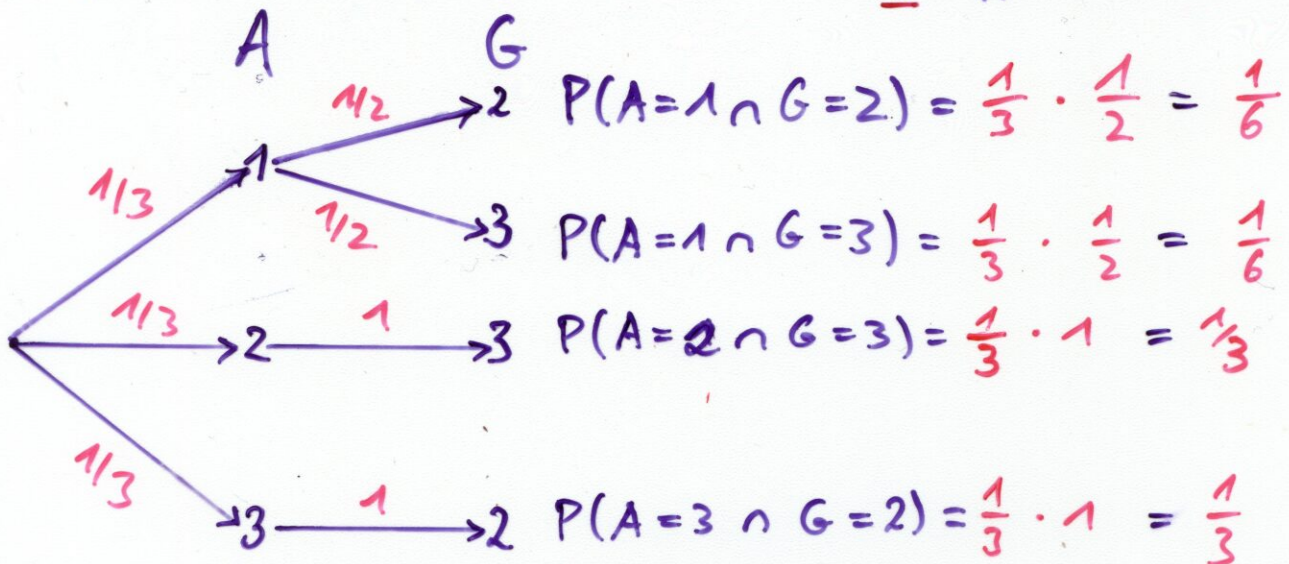 A G
1/2 2 P(A=1 ∩ G=2) = 1/3 · 1/2 = 1/6
1/3 1
1/2 3 P(A=1 ∩ G=3) = 1/3 · 1/2 = 1/6
1/3 2 1 3 P(A=2 ∩ G=3) = 1/3 · 1 = 1/3
1/3 3 1 2 P(A=3 ∩ G=2) = 1/3 · 1 = 1/3